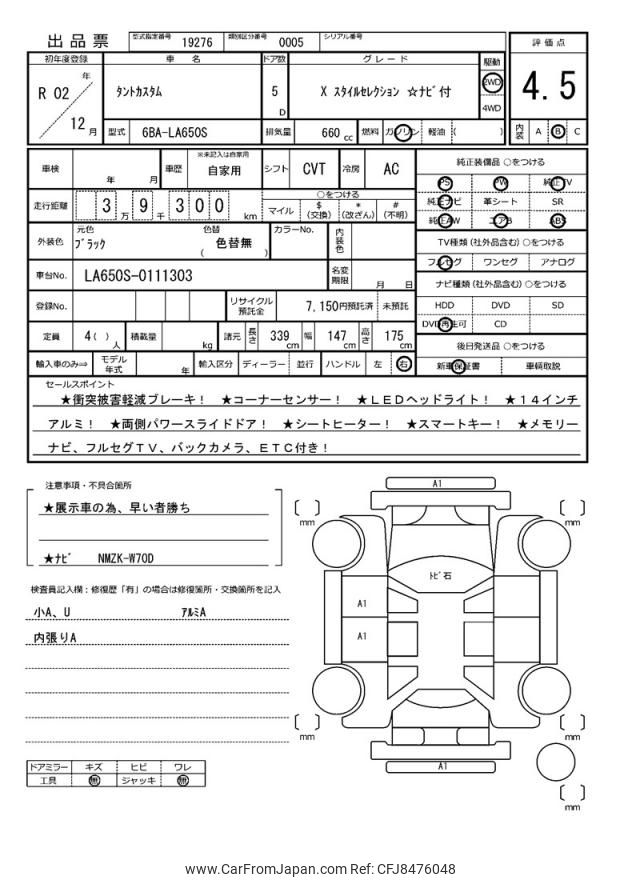 出品票 型式指定番号 19276 類別区分番号 0005 シリアル番号
評価点
4.5
内装 A B C
初年度登録 車名 ドア数 グレード 駆動
R 02 年 12 月 タントカスタム 5 D X スタイルセレクション ☆ナビ付 2WD 4WD
型式 6BA-LA650S 排気量 660 cc 燃料 ガソリン 軽油 ( )
車検 年 月 車歴 ※未記入は自家用 自家用 シフト CVT 冷房 AC
走行距離 3 万 9 千 3 0 0 km ○をつける マイル $ (交換) * (改ざん) # (不明)
外装色 元色 ブラック 色替 ( 色替無 ) カラーNo. 内装色
車台No. LA650S-0111303 名変期限 月 日
登録No. リサイクル預託金 7,150円預託済 未預託
定員 4( ) 人 積載量 kg 諸元 長さ 339 cm 幅 147 cm 高さ 175 cm
輸入車のみ⇒ モデル年式 年 輸入区分 ディーラー 並行 ハンドル 左 右
純正装備品 ○をつける
PS PW 純正TV
純正ナビ 革シート SR
純正AW エアB ABS
TV種類 (社外品含む) ○をつける
フルセグ ワンセグ アナログ
ナビ種類 (社外品含む) ○をつける
HDD DVD SD
DVD再生可 CD
後日発送品 ○をつける
新車保証書 車輌取説
セールスポイント
★衝突被害軽減ブレーキ！ ★コーナーセンサー！ ★LEDヘッドライト！ ★14インチ
アルミ！ ★両側パワースライドドア！ ★シートヒーター！ ★スマートキー！ ★メモリー
ナビ、フルセグTV、バックカメラ、ETC付き！
注意事項・不具合箇所
★展示車の為、早い者勝ち
★ナビ NMZK-W70D
検査員記入欄：修復歴「有」の場合は修復箇所・交換箇所を記入
小A、U アルミA
内張りA
ドアミラー キズ ヒビ ワレ
工具 無 ジャッキ 無
A1
mm
mm
トビ石
A1
A1
mm
mm
A1
mm
www.CarFromJapan.com Ref: CFJ8476048